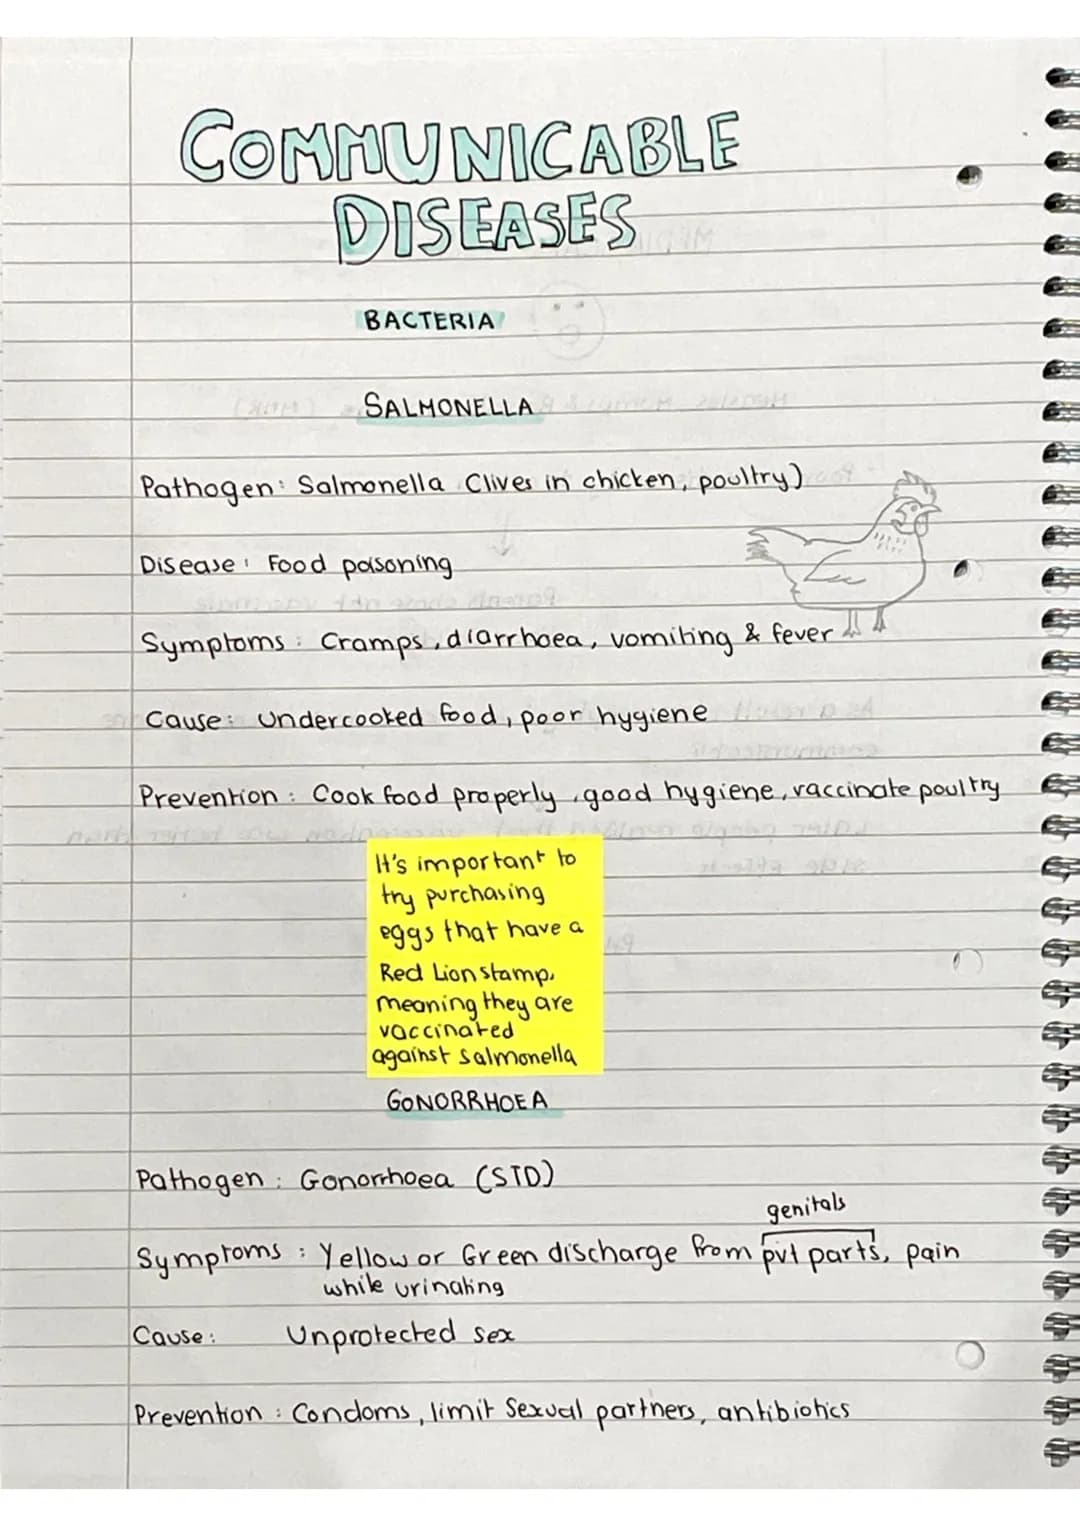 COMMUNICABLE
DISEASES
BACTERIA
SALMONELLA
Pathogen: Salmonella (lives in chicken, poultry)
Disease: Food poisoning
Symptoms: Cramps, diarrhoea, vomiting & fever
Cause: Undercooked food, poor hygiene
Prevention: Cook food properly, good hygiene, vaccinate poultry
It's important to
try purchasing
eggs that have a
Red Lion stamp,
meaning they are
vaccinated
against salmonella
GONORRHOEA
Pathogen: Gonorrhoea (STD)
genitals
Symptoms: Yellow or Green discharge from pvt parts, pain
while urinating
Cause: Unprotected sex
Prevention: Condoms, limit Sexual partners, antibiotics